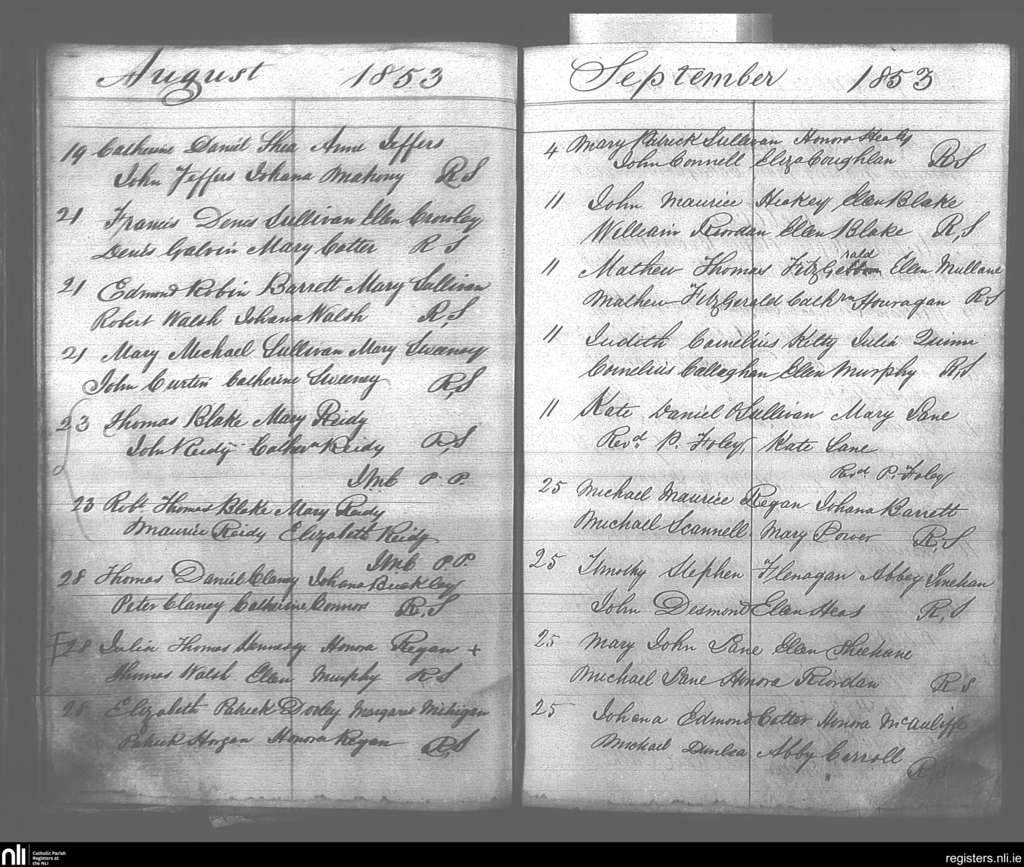 August 1853
19 Catherine Daniel Shea Anne Jeffers
John Jeffers Johana Mahony RS
21 Francis Denis Sullivan Ellen Crowley
Denis Galvin Mary Cotter RS
21 Edmond Robin Barrett Mary Sullivan
Robert Walsh Johana Walsh R,S
21 Mary Michael Sullivan Mary Sweeney
John Curtin Catherine Sweeney R,S
23 Thomas Blake Mary Reidy
John Reidy Reidy R,S
P.P.
23 Robt Thomas Blake Mary Reidy
Maurice Reidy Elizabeth Reidy
P.P.
28 Thomas Daniel Clancy Johana Buckley
Peter Clancy Catherine Connor R,S
28 Julia Thomas Hennessy Honora Regan +
Thomas Walsh Ellen Murphy RS
28 Elizabeth Patrick Margaret
Patrick Horgan Honora Regan R,S
September 1853
4 Mary Patrick Sullivan Honora Healy
John Connell Eliza Coughlan RS
11 John Maurice Hickey Ellen Blake
William Riordan Ellen Blake R,S
rald
11 Mathew Thomas FitzGe Ellen Mullane
Mathew FitzGerald Cathrn Houragan RS
11 Judith Cornelius Julia Quinn
Cornelius Callaghan Ellen Murphy R,S
11 Kate Daniel OSullivan Mary Lane
Revd. P. Foley, Kate Lane
Revd P. Foley
25 Michael Maurice Regan Johana Barrett
Michael Scannell Mary Power R,S
25 Timothy Stephen Flenagan Abbey Linehan
John Desmond Ellen R,S
25 Mary John Lane Ellen Sheehane
Michael Lane Honora Riordan RS
25 Johana Edmond Cotter Honora McAuliffe
Michael Dunlea Abby Carroll
R,S
nli Catholic Parish Registers at the NLI
registers.nli.ie